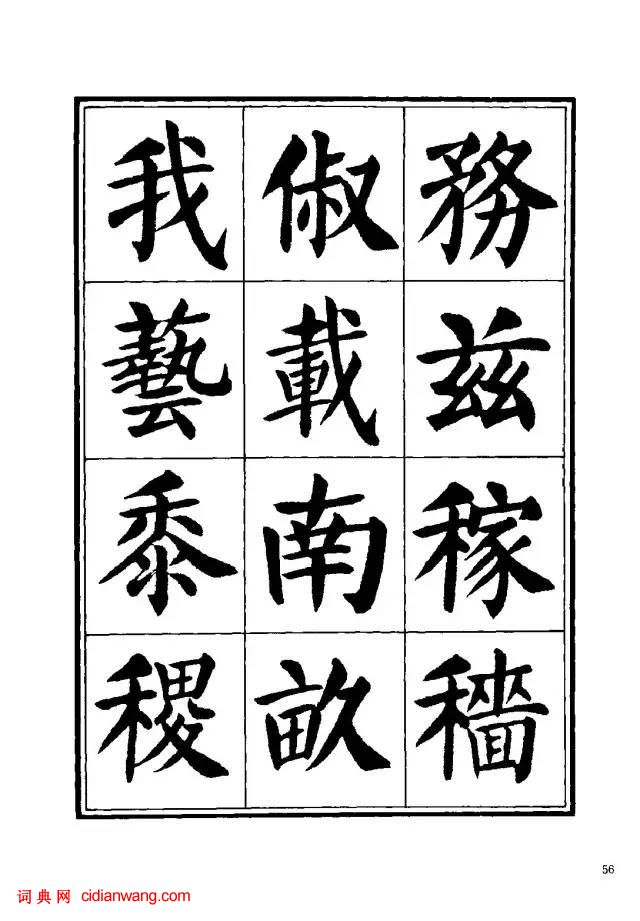 務茲稼穡
俶載南畝
我藝黍稷
56
词典网 cidianwang.com